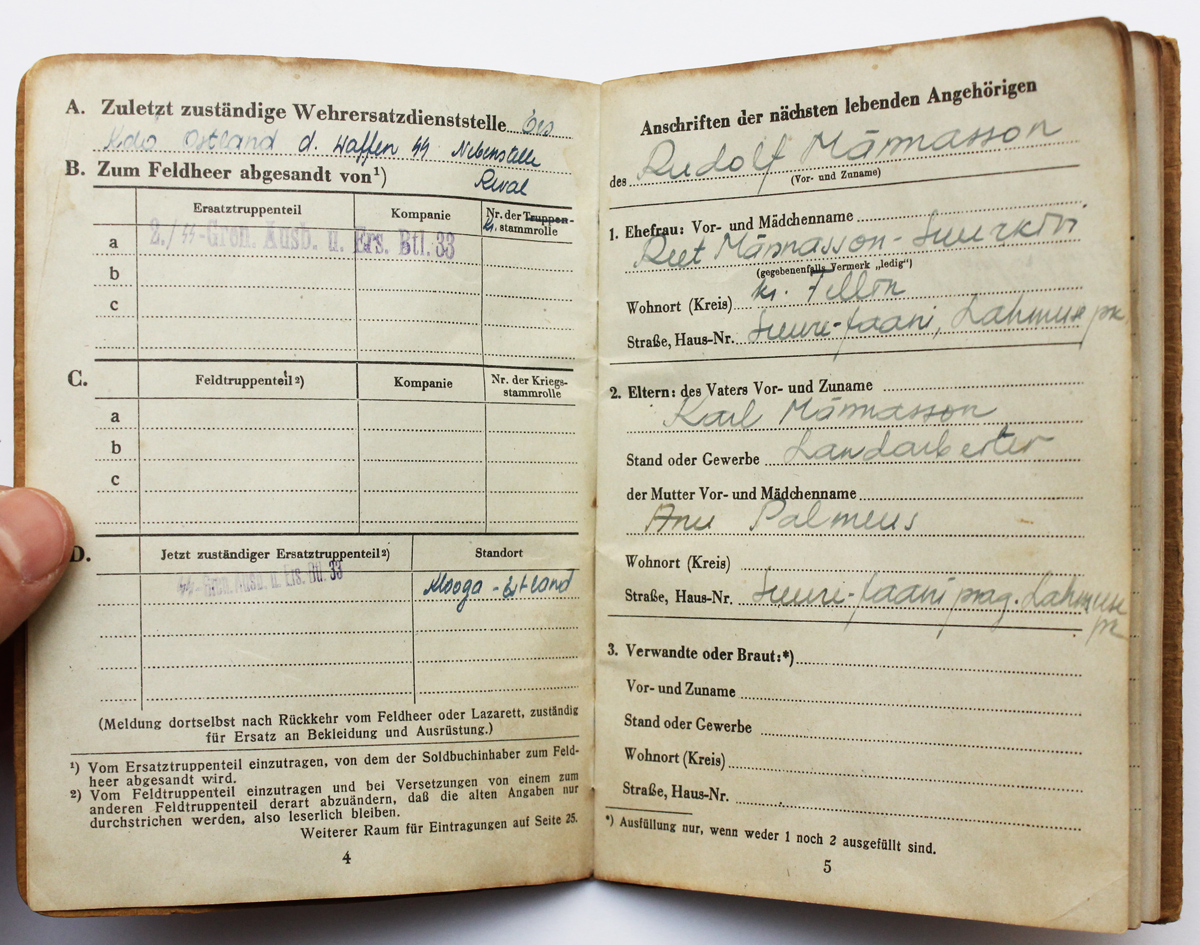 A. Zuletzt zuständige Wehrersatzdienststelle
Ostland d. Waffen SS Nebenstelle
B. Zum Feldheer abgesandt von¹) Reval
Ersatztruppenteil Kompanie Nr. der Truppen-
Kr. stammrolle
a 2./SS-Gren. Ausb. u. Ers. Btl. 33
b
c
C. Feldtruppenteil²) Kompanie Nr. der Kriegs-
stammrolle
a
b
c
D. Jetzt zuständiger Ersatztruppenteil²) Standort
SS-Gren. Ausb. u. Ers. Btl. 33 Klooga - Estland
(Meldung dortselbst nach Rückkehr vom Feldheer oder Lazarett, zuständig
für Ersatz an Bekleidung und Ausrüstung.)
¹) Vom Ersatztruppenteil einzutragen, von dem der Soldbuchinhaber zum Feld-
heer abgesandt wird.
²) Vom Feldtruppenteil einzutragen und bei Versetzungen von einem zum
anderen Feldtruppenteil derart abzuändern, daß die alten Angaben nur
durchstrichen werden, also leserlich bleiben.
Weiterer Raum für Eintragungen auf Seite 25.
4
Anschriften der nächsten lebenden Angehörigen
des Rudolf Männasson
(Vor- und Zuname)
1. Ehefrau: Vor- und Mädchenname
Reet Männasson-
(gegebenenfalls Vermerk „ledig")
Wohnort (Kreis) kr. Fellin
Straße, Haus-Nr. Suure-Jaani, Lahmuse
2. Eltern: des Vaters Vor- und Zuname
Karl Männasson
Stand oder Gewerbe Landarbeiter
der Mutter Vor- und Mädchenname
Anu Palmeus
Wohnort (Kreis)
Straße, Haus-Nr. Suure-Jaani Lahmuse
3. Verwandte oder Braut:*)
Vor- und Zuname
Stand oder Gewerbe
Wohnort (Kreis)
Straße, Haus-Nr.
*) Ausfüllung nur, wenn weder 1 noch 2 ausgefüllt sind.
5